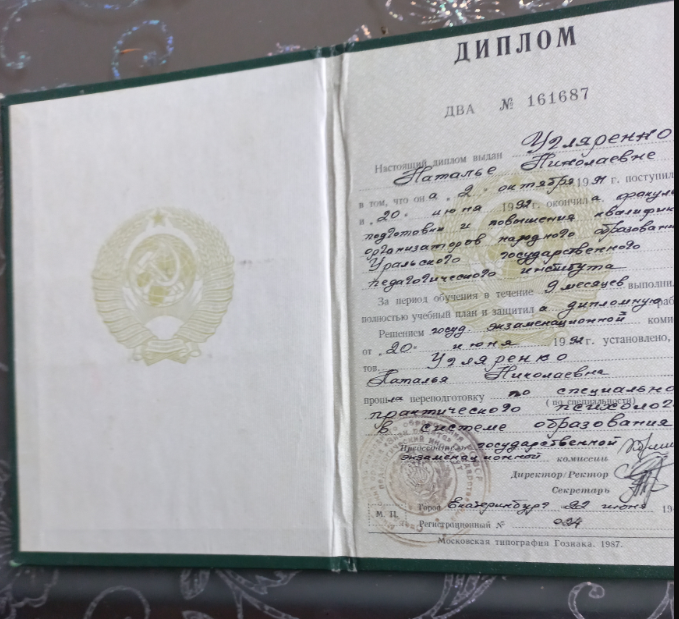 ДИПЛОМ
ДВА № 161687
Настоящий диплом выдан Угляренко
Наталье Николаевне
в том, что она 2 октября 1991 г. поступил
и „20" июня 1992 г. окончила факуль
подготовки и повышения квалифик
организаторов народного образовани
Уральского государственного
педагогического института
За период обучения в течение 9 месяцев выполнил
полностью учебный план и защитила дипломную раб
Решением госуд. экзаменационной коми
от „20" июня 1992 г. установлено,
Угляренко
Наталья Николаевна
прошла переподготовку по специально
(по специальности)
практического психолог
в системе образования
Председатель государственной
экзаменационной комиссии
Директор/Ректор
Секретарь
М. П. Город Екатеринбург 22 июня 19
Регистрационный № 024
Московская типография Гознака. 1987.